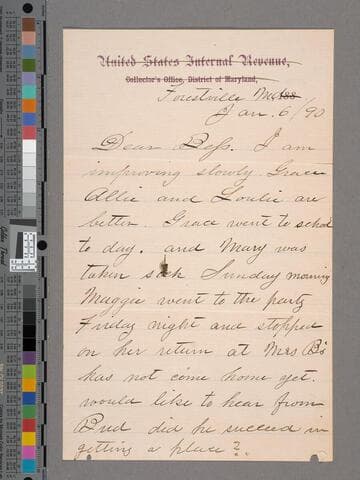 United States Internal Revenue,
Collector's Office, District of Maryland,
Forestville Md 188
Jan. 6/90
Dear Bess. I am
improving slowly. Grace
Allie and Loulie are
better. Grace went to school
to day. and Mary was
taken sick Sunday morning
Maggie went to the party
Friday night and stopped
on her return at Mrs B's
has not come home yet.
would like to hear from
Bud did he succeed in
getting a place?